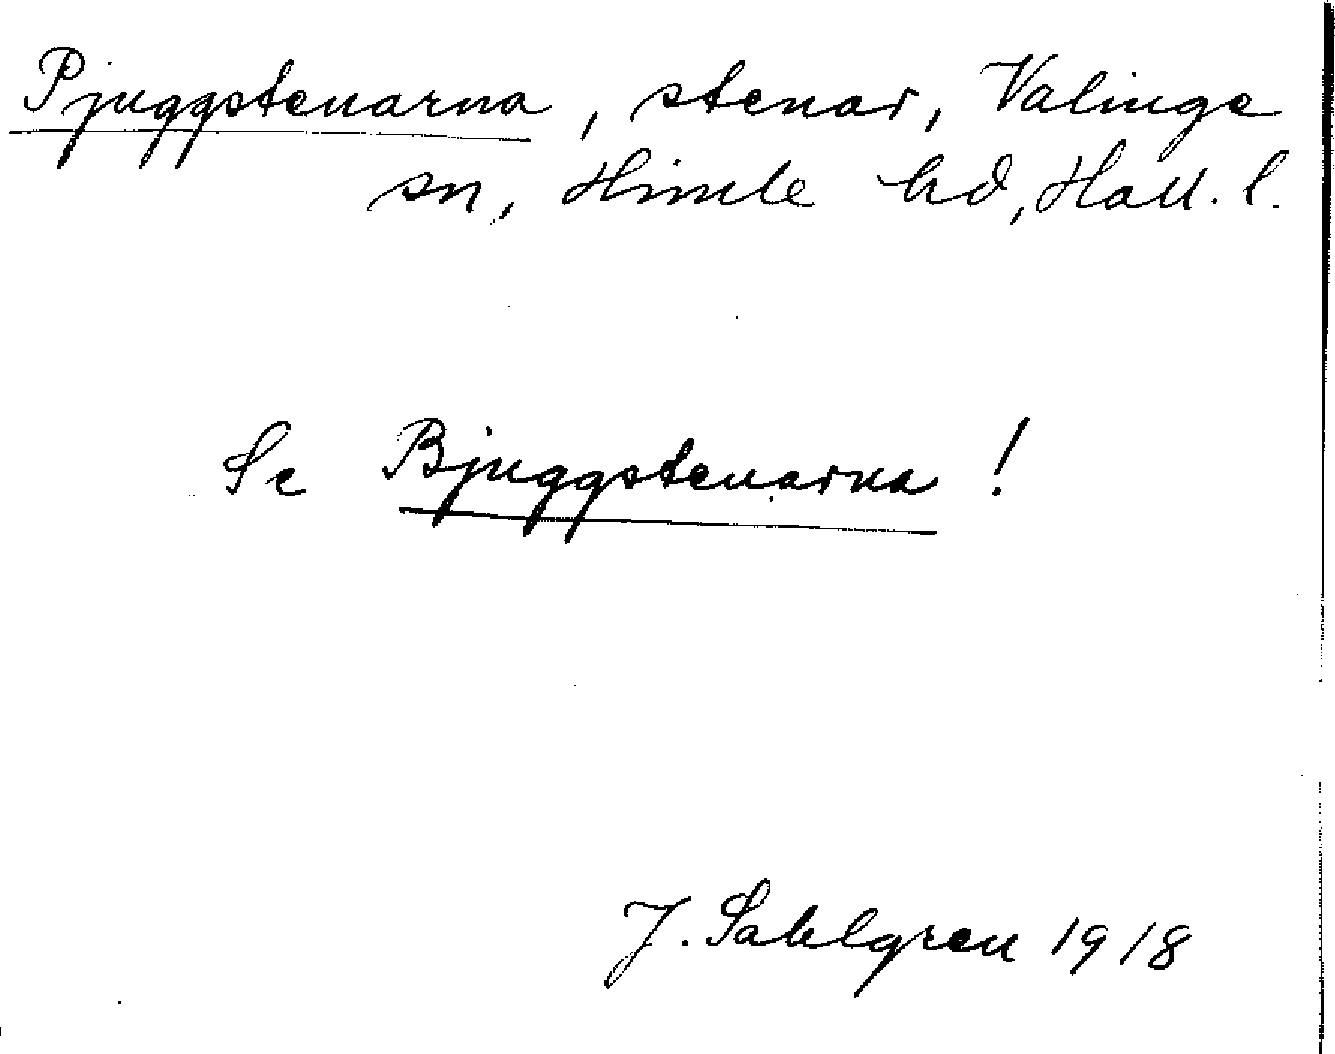 Pjuggstenarna, stenar, Valinge
sn, Himle hd, Hall. l.
Se Bjuggstenarna!
J. Sahlgren 1918